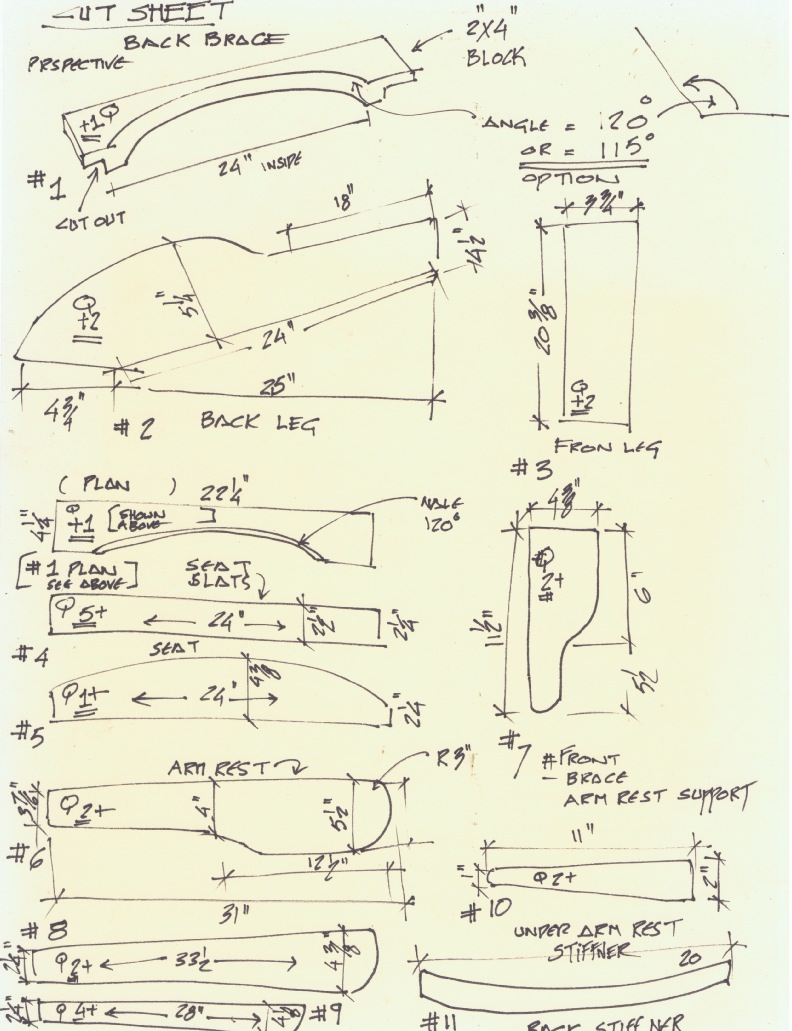 CUT SHEET
BACK BRACE
PRSPECTIVE
2X4"
BLOCK
Q
+1
ANGLE = 120°
OR = 115°
OPTION
24" INSIDE
#1
CUT OUT
18"
4 1/2"
3 3/4"
5 1/4"
Q
+2
24"
25"
4 3/4"
#2 BACK LEG
20 3/8"
Q
+2
FRON LEG
#3
(PLAN)
22 1/4"
4 1/4"
Q
+1
[SHOWN
ABOVE]
120°
[#1 PLAN
SEE ABOVE]
SEAT
SLATS
Q 5+
24"
2 1/2"
2 1/4"
#4
SEAT
Q 1+
24"
4 3/8
2 1/4"
#5
4 3/8"
Q
2+
#
6"
11 1/2"
5 1/2
#7 #FRONT
- BRACE
ARM REST SUPPORT
ARM REST
R 3"
Q 2+
4"
5 1/2"
#6
12 1/2"
31"
11"
1"
Q 2+
2"
#10
UNDER ARM REST
STIFFNER
#8
Q 2+
33 1/2
4 3/8"
20
Q 4+
28"
#9
#11
BACK STIFFNER